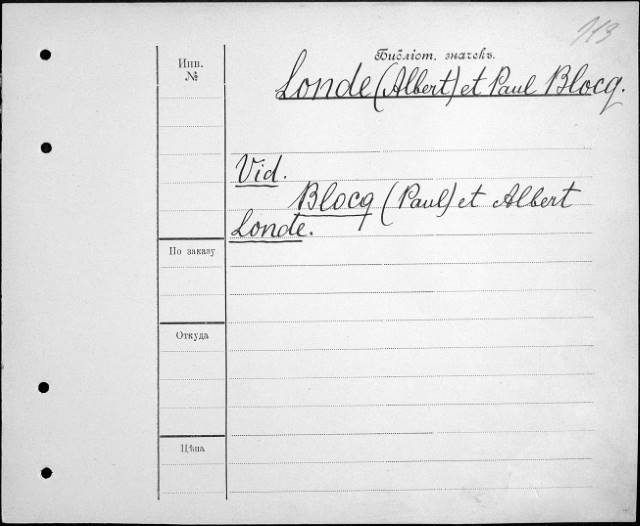 113
Библіот. значекъ.
Londe (Albert) et Paul Blocq.
Инв.
№
Vid.
Blocq (Paul) et Albert
Londe.
По заказу
Откуда
Цѣна